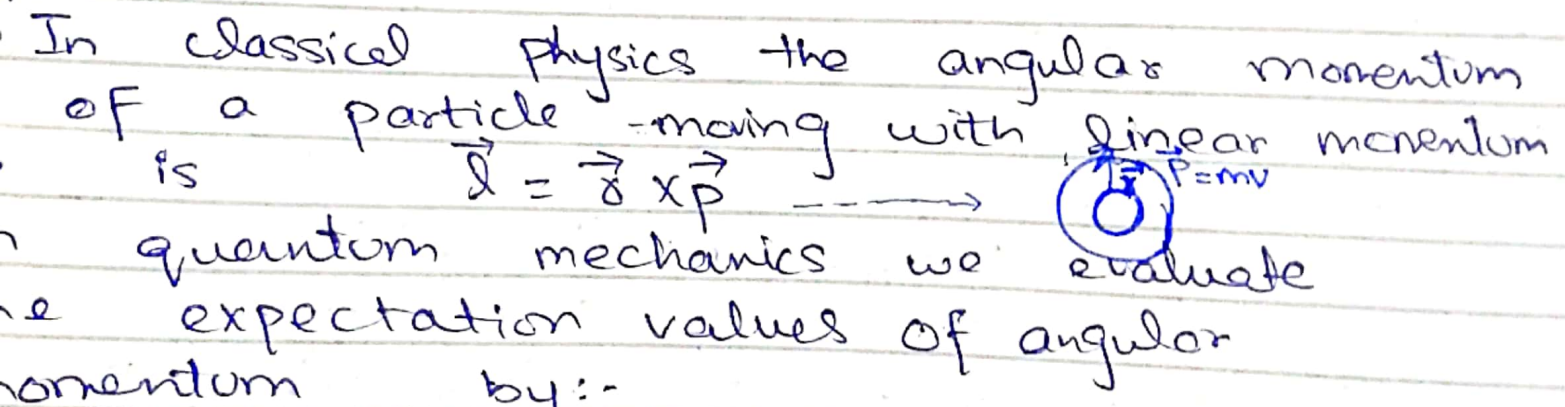 In classical physics the angular momentum
of a particle moving with linear momentum
is l⃗ = r⃗ × p⃗ -----> r⃗ P⃗=mv
quantum mechanics we evaluate
expectation values of angular
omentum by:-